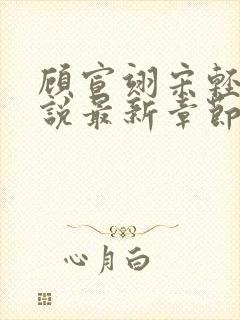 顾宣翊宋轻
说最新章节
心月白